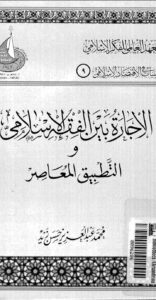 المعهد العالمي للفكر الإسلامي
دراسات في الاقتصاد الإسلامي (٩)
الإجارة بين الفقه الإسلامي
و
التطبيق المعاصر
محمد عبد العزيز حسن زيد